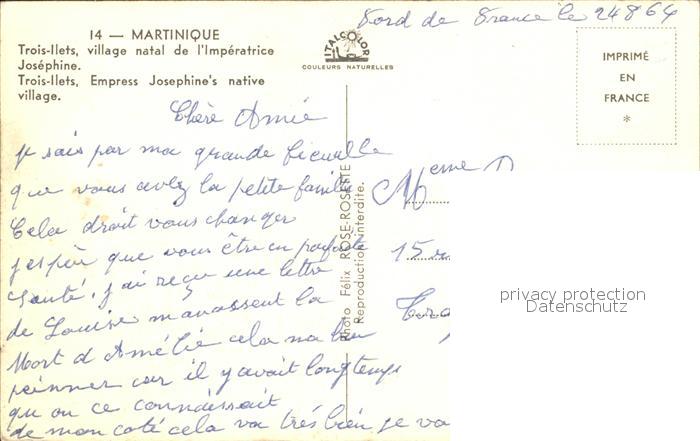 Ford de France le 24 8 64
14 — MARTINIQUE
Trois-Ilets, village natal de l'Impératrice
Joséphine.
Trois-Ilets, Empress Josephine's native
village.
ITALCOLOR
COULEURS NATURELLES
IMPRIMÉ
EN
FRANCE
*
Chère Amie
je sais par ma grande
que vous avez la petite famille
Cela droit vous changer
j'espèr que vous être en parfaite
Santé, j'ai reçu une lettre
de Louise la
Mort d Amélie cela ma bien
peinner car il y avait longtemps
qu on ce connaissait
de mon coté cela va très bien je va
Meme D
15
Photo Félix ROSE-ROSETTE
Reproduction interdite.
privacy protection
Datenschutz